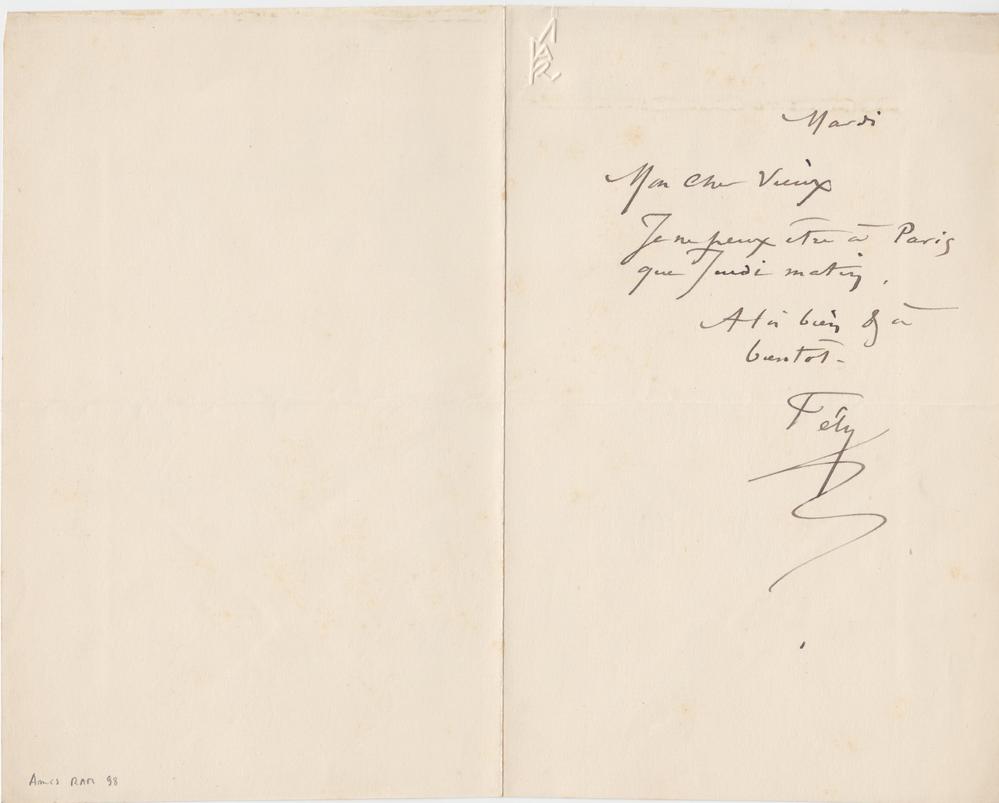 Mardi
Mon cher Vieux
Je ne peux être à Paris
que Jeudi matin.
A toi bien & à
bientôt -
Fély
Amis RAM 98